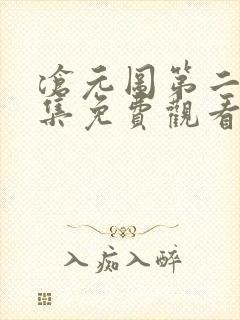 滄元圖第二
集免費觀看
入痴入醉